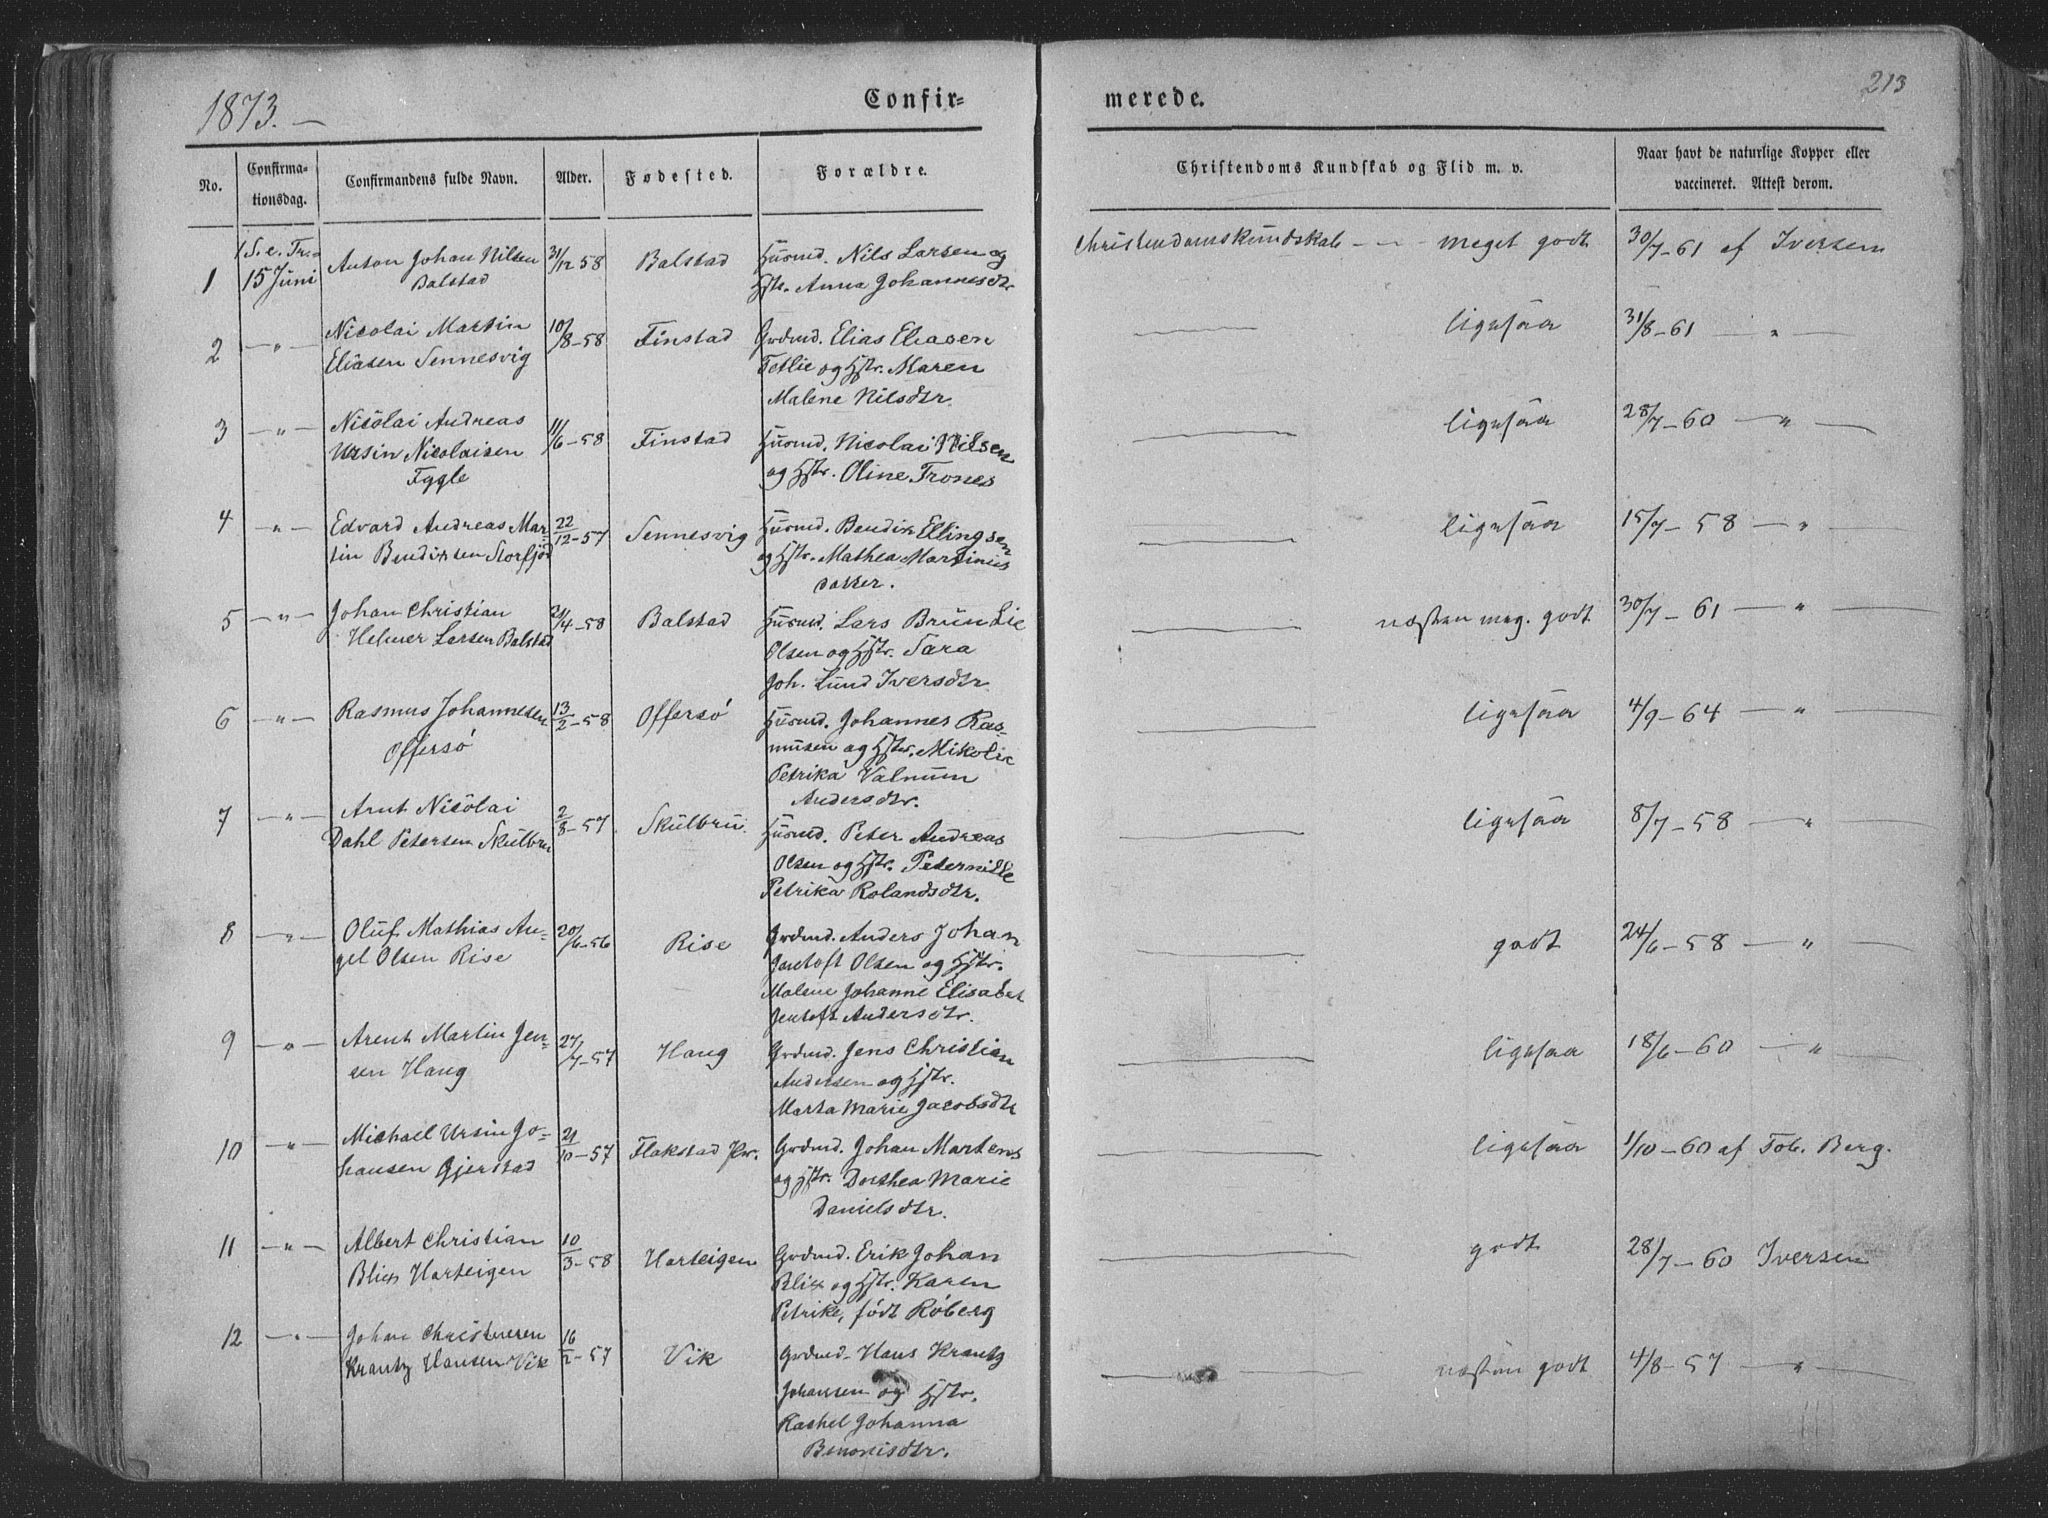 1873. —
Confir=
merede.
213
No.
Confirma-
tionsdag.
Confirmandens fulde Navn.
Alder.
Fødested.
Forældre.
Christendoms Kundskab og Flid m. v.
Naar havt de naturlige Kopper eller
vaccineret. Attest derom.
1 S. e. Tri=
1 15 Juni Anton Johan Nilsen 31/12 58 Balstad Husmd. Nils Larsen og Christendomskundskab — — meget godt 30/7-61 af Iversen
Balstad Hstr. Anna Johannesdtr
2 — " — Nicolai Martin 10/8-58 Finstad Grdmd. Elias Eliasen — ligesaa 31/8-61 — " —
Eliasen Sennesvig Tetlie og Hstr. Maren
Malene Nilsdtr.
3 — " — Nicolai Andreas 11/6-58 Finstad Husmd. Nicolai Nilsen — ligesaa 28/7-60 — " —
Ursin Nicolaisen og Hstr. Oline Trones
Fygle
4 — " — Edvard Andreas Mar= 22/12-57 Sennesvig Husmd. Bendix Ellingsen — ligesaa 15/7-58 — " —
tin Bendixsen Storfjord og Hstr. Mathea Martinius
datter.
5 — " — Johan Christian 21/4-58 Balstad Husmd. Lars Brun Lie — næsten meg. godt 30/7-61 — " —
Helmer Larsen Balstad Olsen og Hstr. Sara
Joh. Lund Iversdtr.
6 — " — Rasmus Johannesen 13/2-58 Offersø Husmd. Johannes Ras= — ligesaa 4/9-64 — " —
Offersø musen og Hstr. Mikolie
Petrika Valnum
Andersdtr.
7 — " — Arnt Nicolai 2/8-57 Skulbru. Husmd. Peter Andreas — ligesaa 8/7-58 — " —
Dahl Petersen Skulbru Olsen og Hstr. Peternille
Petrika Rolandsdtr.
8 — " — Oluf Mathias An- 20/6-56 Rise Grdmd. Anders Johan — godt 24/6-58 — " —
gel Olsen Rise Jentoft Olsen og Hstr.
Malene Johanne Elisabet
Jentoft Andersdtr.
9 — " — Arent Martin Jen- 27/7-57 Haug Grdmd. Jens Christian — ligesaa 18/6-60 — " —
sen Haug Andersen og Hstr.
Marta Marie Jacobsdtr
10 — " — Michael Ursin Jo- 21/10-57 Flakstad Pr. Grdmd. Johan Martens — ligesaa 1/10-60 af Tob. Berg.
hansen Gjerstad og Hstr. Dorthea Marie
Danielsdtr.
11 — " — Albert Christian 10/3-58 Harteigen Grdmd. Erik Johan — godt 28/7-60 Iversen
Blix Harteigen Blix og Hstr. Karen
Petrike, født Røberg
12 — " — Johan 16/2-57 Vik Grdmd. Hans Krantz — næsten godt 4/8-57 — " —
Krantz Hansen Vik Johansen og Hstr.
Rachel Johanna
Benonisdtr.